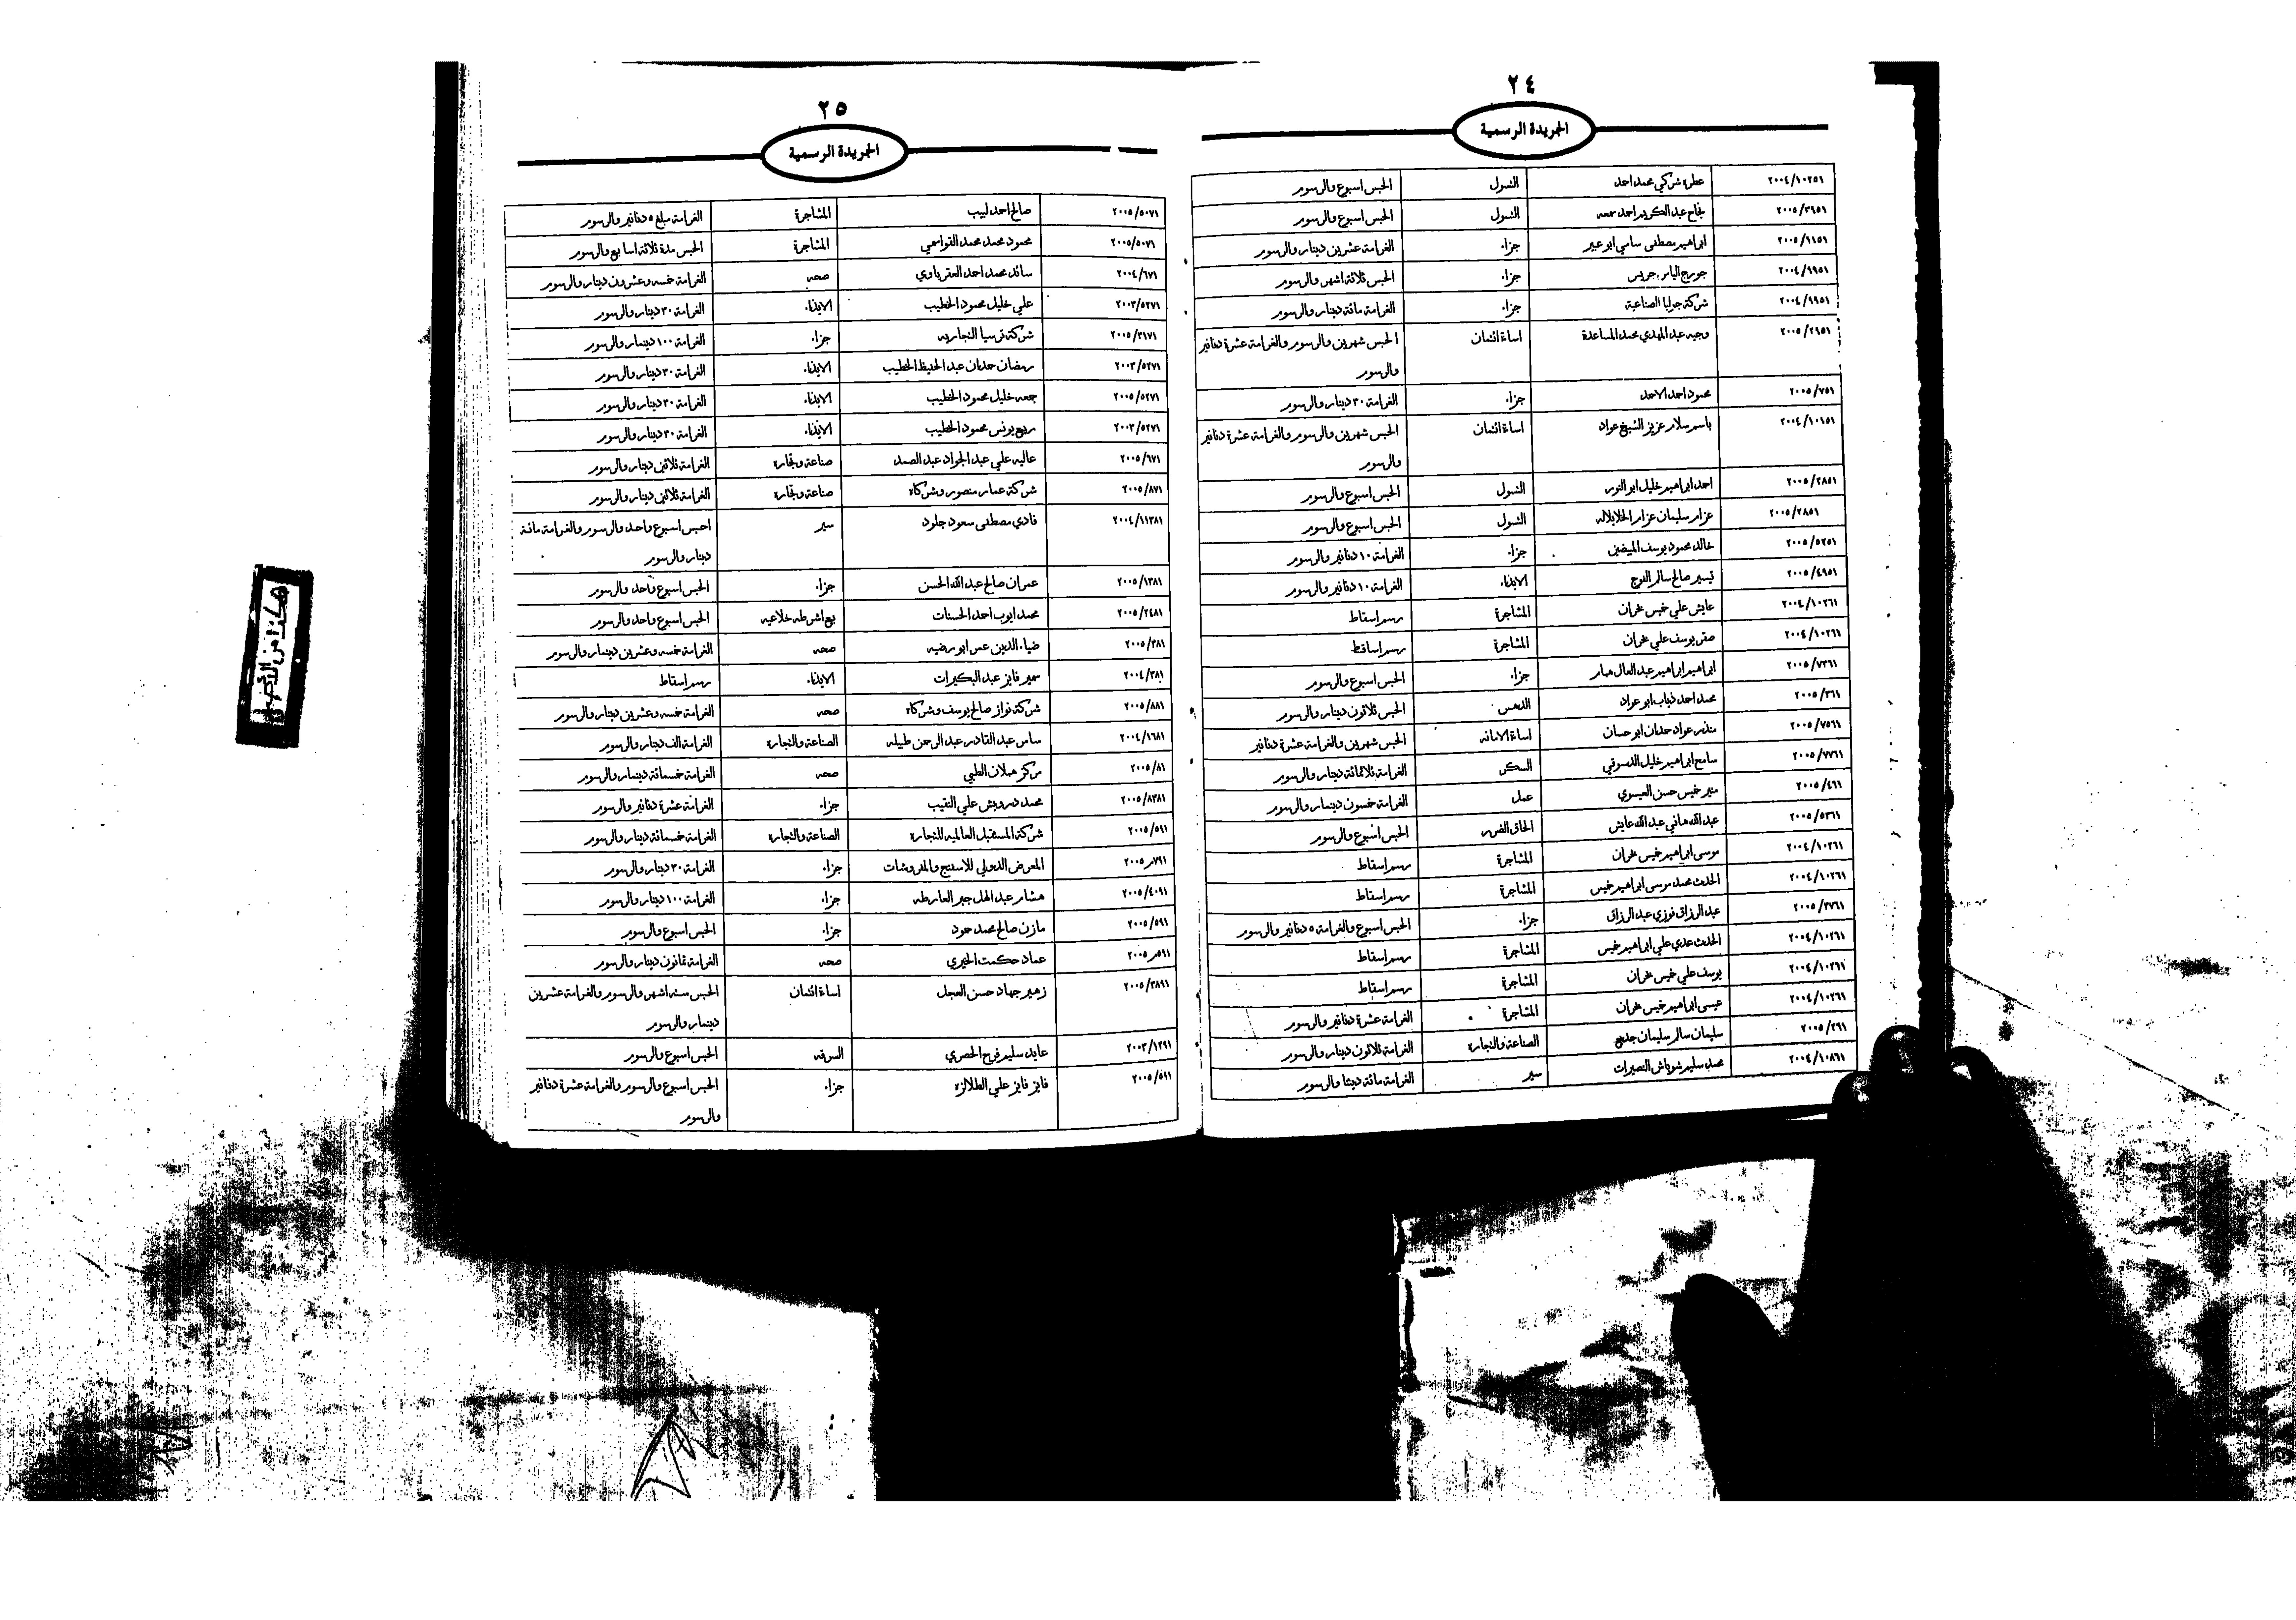 ٢٤
الجريدة الرسمية
٢٠٠٤/١٠٢٥١ عطره شركي محمد احمد التسول الحبس اسبوع والرسوم
٢٠٠٥/٣٩٥١ نجاح عبد الكريم احمد سمعه التسول الحبس اسبوع والرسوم
٢٠٠٥/١١٥١ ابراهيم مصطفى سامي ابو عبير جزاء الغرامة عشرين دينار والرسوم
٢٠٠٤/٩٩٥١ جورج الياس جريس جزاء الحبس ثلاثة اشهر والرسوم
٢٠٠٤/٩٩٥١ شركة جوليا الصناعية جزاء الغرامة مائة دينار والرسوم
٢٠٠٥/٢٩٥١ وجيه عبد المهدي محمد المساعدة اساءة ائتمان الحبس شهرين والرسوم والغرامة عشرة دنانير
والرسوم
٢٠٠٥/٧٥١ محمود احمد الاحمد جزاء الغرامة ٣٠ دينار والرسوم
٢٠٠٤/١٠١٥١ باسم سلام عزيز الشيخ عواد اساءة ائتمان الحبس شهرين والرسوم والغرامة عشرة دنانير
والرسوم
٢٠٠٥/٢٨٥١ احمد ابراهيم خليل ابو النور التسول الحبس اسبوع والرسوم
٢٠٠٥/٢٨٥١ عزام سليمان عزام الخلايلاله التسول الحبس اسبوع والرسوم
٢٠٠٥/٥٢٥١ خالد محمود يوسف المبيضين جزاء الغرامة ١٠ دنانير والرسوم
٢٠٠٥/٤٩٥١ تيسير صالح سالم الفرج الايذاء الغرامة ١٠ دنانير والرسوم
٢٠٠٤/١٠٢٦١ عايش علي خميس عمران المشاجرة رسم اسقاط
٢٠٠٤/١٠٢٦١ صقر يوسف علي عمران المشاجرة رسم اساقط
٢٠٠٥/٧٣٦١ ابراهيم ابراهيم عبد العال جزاء الحبس اسبوع والرسوم
٢٠٠٥/٣٦١ محمد احمد ذياب ابو عواد الدهس الحبس ثلاثون دينار والرسوم
٢٠٠٥/٧٥٦١ منذر عواد حمدان ابو حسان اساءة الامانه الحبس شهرين والغرامة عشرة دنانير
٢٠٠٥/٧٧٦١ سامح ابراهيم خليل الدسوقي السكر الغرامة ثلاثمائة دينار والرسوم
٢٠٠٥/٤٦١ منير خميس حسن العيسوي عمل الغرامة خمسون دينار والرسوم
٢٠٠٥/٥٣٦١ عبدالله هاني عبدالله عايش الحاق الضرر الحبس اسبوع والرسوم
٢٠٠٤/١٠٢٦١ موسى ابراهيم خميس عمران المشاجرة رسم اسقاط
٢٠٠٤/١٠٢٦١ الحدث محمد موسى ابراهيم خميس المشاجرة رسم اسقاط
٢٠٠٥/٣٧٦١ عبد الرزاق فوزي عبد الرزاق جزاء الحبس اسبوع والغرامة ٥ دنانير والرسوم
٢٠٠٤/١٠٢٦١ الحدث عدي علي ابراهيم خميس المشاجرة رسم اسقاط
٢٠٠٤/١٠٢٦١ يوسف علي خميس عمران المشاجرة رسم اسقاط
٢٠٠٤/١٠٢٦١ عيسى ابراهيم خميس عمران المشاجرة الغرامة عشرة دنانير والرسوم
٢٠٠٥/٢٦١ سليمان سالم سليمان جديع الصناعة والتجارة الغرامة ثلاثون دينار والرسوم
٢٠٠٤/١٠٨٦١ محمد سليم شوباش النصيرات سير الغرامة مائة دينا والرسوم
٢٥
الجريدة الرسمية
٢٠٠٥/٥٠٧١ صالح احمد لبيب المشاجرة الغرامة مبلغ ٥ دنانير والرسوم
٢٠٠٥/٥٠٧١ محمود محمد محمد القواسمي المشاجرة الحبس مدة ثلاثة اسابيع والرسوم
٢٠٠٤/٦٧١ سائد محمد احمد العقرباوي صحه الغرامة خمسه وعشرون دينار والرسوم
٢٠٠٣/٥٢٧١ علي خليل محمود الخطيب الايذاء الغرامة ٣٠ دينار والرسوم
٢٠٠٥/٣١٧١ شركة ترسيا التجاريه جزاء الغرامة ١٠٠ دينار والرسوم
٢٠٠٣/٥٢٧١ رمضان حمدان عبد الحفيظ الخطيب الايذاء الغرامة ٣٠ دينار والرسوم
٢٠٠٥/٥٢٧١ جمعه خليل محمود الخطيب الايذاء الغرامة ٣٠ دينار والرسوم
٢٠٠٣/٥٢٧١ ربيع يونس محمود الخطيب الايذاء الغرامة ٣٠ دينار والرسوم
٢٠٠٥/٦٧١ عاليه علي عبد الجواد عبد الصمد صناعة وتجاره الغرامة ثلاثين دينار والرسوم
٢٠٠٥/٨٧١ شركة عمار منصور وشركاه صناعة وتجاره الغرامة ثلاثين دينار والرسوم
٢٠٠٤/١١٣٨١ فادي مصطفى سعود جلود سير احبس اسبوع واحد والرسوم والغرامة مائة
دينار والرسوم
٢٠٠٥/١٣٨١ عمران صالح عبد الله الحسن جزاء الحبس اسبوع واحد والرسوم
٢٠٠٥/٢٤٨١ محمد ايوب احمد الحسنات بيع اشرطه خلاعيه الحبس اسبوع واحد والرسوم
٢٠٠٥/٣٨١ ضياء الدين عمر ابو رضيه صحه الغرامة خمسه وعشرين دينار والرسوم
٢٠٠٤/٣٨١ سمير فايز عبد البكيرات الايذاء رسم اسقاط
٢٠٠٥/٨٨١ شركة نواز صالح يوسف وشركاه صحه الغرامة خمسه وعشرين دينار والرسوم
٢٠٠٤/١٦٨١ سامر عبد القادر عبد الرحمن طبيله الصناعة والتجارة الغرامة الف دينار والرسوم
٢٠٠٥/٨١ مركز هملان الطبي صحه الغرامة خمسمائة دينار والرسوم
٢٠٠٥/٨٣٨١ محمد درويش علي النقيب جزاء الغرامة عشرة دنانير والرسوم
٢٠٠٥/٥٩١ شركة المستقبل العالميه للتجارة الصناعة والتجارة الغرامة خمسمائة دينار والرسوم
٢٠٠٥/٧٩١ المعرض الدولي للاسفنج والمفروشات جزاء الغرامة ٣٠ دينار والرسوم
٢٠٠٥/٤٠٩١ هشام عبد الهل جبر العارطه جزاء الغرامة ١٠٠ دينار والرسوم
٢٠٠٥/٥٩١ مازن صالح محمد حمود جزاء الحبس اسبوع والرسوم
٢٠٠٥/٥٩١ عماد حكمت الخيري صحه الغرامة ثمانون دينار والرسوم
٢٠٠٥/٣٨٩١ زهير جهاد حسن العجل اساءة ائتمان الحبس سته اشهر والرسوم والغرامة عشرين
دينار والرسوم
٢٠٠٣/١٢٩١ عايد سليم فرج الحصري السرقه الحبس اسبوع والرسوم
٢٠٠٥/٥٩١ فايز فايز علي الطلالزه جزاء الحبس اسبوع والرسوم والغرامة عشرة دنانير
والرسوم